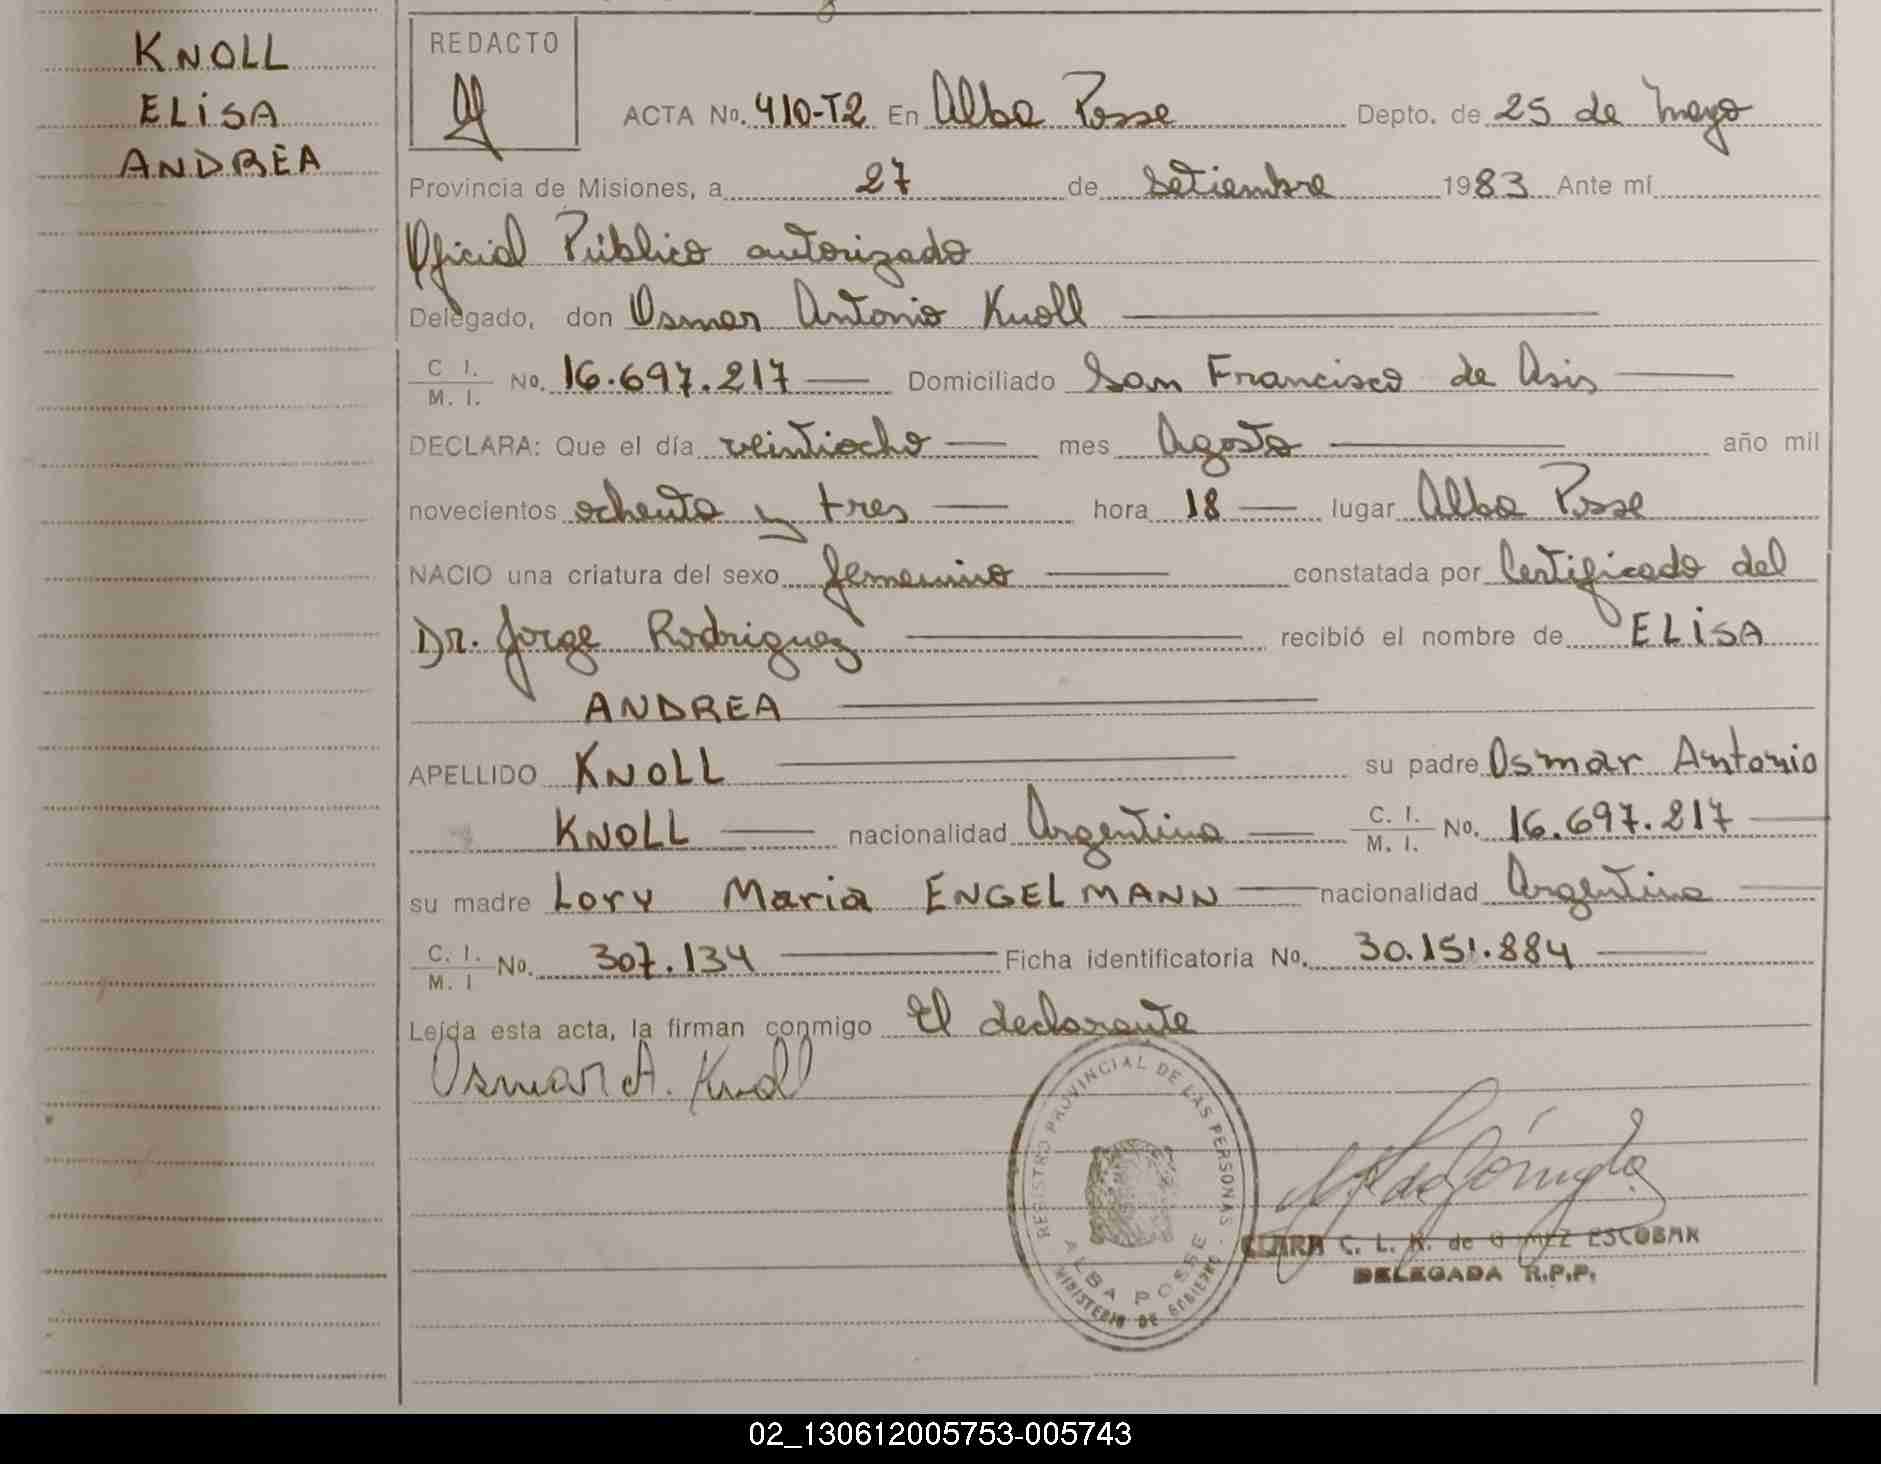 KNOLL
ELiSA
ANDREA
REDACTO
ACTA No. 410-T2 En Alba Posse Depto. de 25 de Mayo
Provincia de Misiones, a 27 de Setiembre 1983 Ante mí
Oficial Público autorizado
Delegado, don Osmar Antonio Knoll
C I. M. I. No. 16.697.217 Domiciliado San Francisco de Asis
DECLARA: Que el día veintiocho mes Agosto año mil
novecientos ochenta y tres hora 18 lugar Alba Posse
NACIO una criatura del sexo femenino constatada por Certificado del
Dr. Jorge Rodriguez recibió el nombre de ELiSA
ANDREA
APELLIDO KNOLL su padre Osmar Antonio
KNOLL nacionalidad Argentina C. I. M. I. No. 16.697.217
su madre Lory Maria ENGELMANN nacionalidad Argentina
C. I. M. I No. 307.134 Ficha identificatoria No. 30.151.884
Leída esta acta, la firman conmigo El declarante
Osmar A. Knoll
REGISTRO PROVINCIAL DE LAS PERSONAS
ALBA POSSE
MINISTERIO DE GOBIERNO
CLARA C. L. K. de GOMEZ ESCOBAR
DELEGADA R.P.P.
02_130612005753-005743